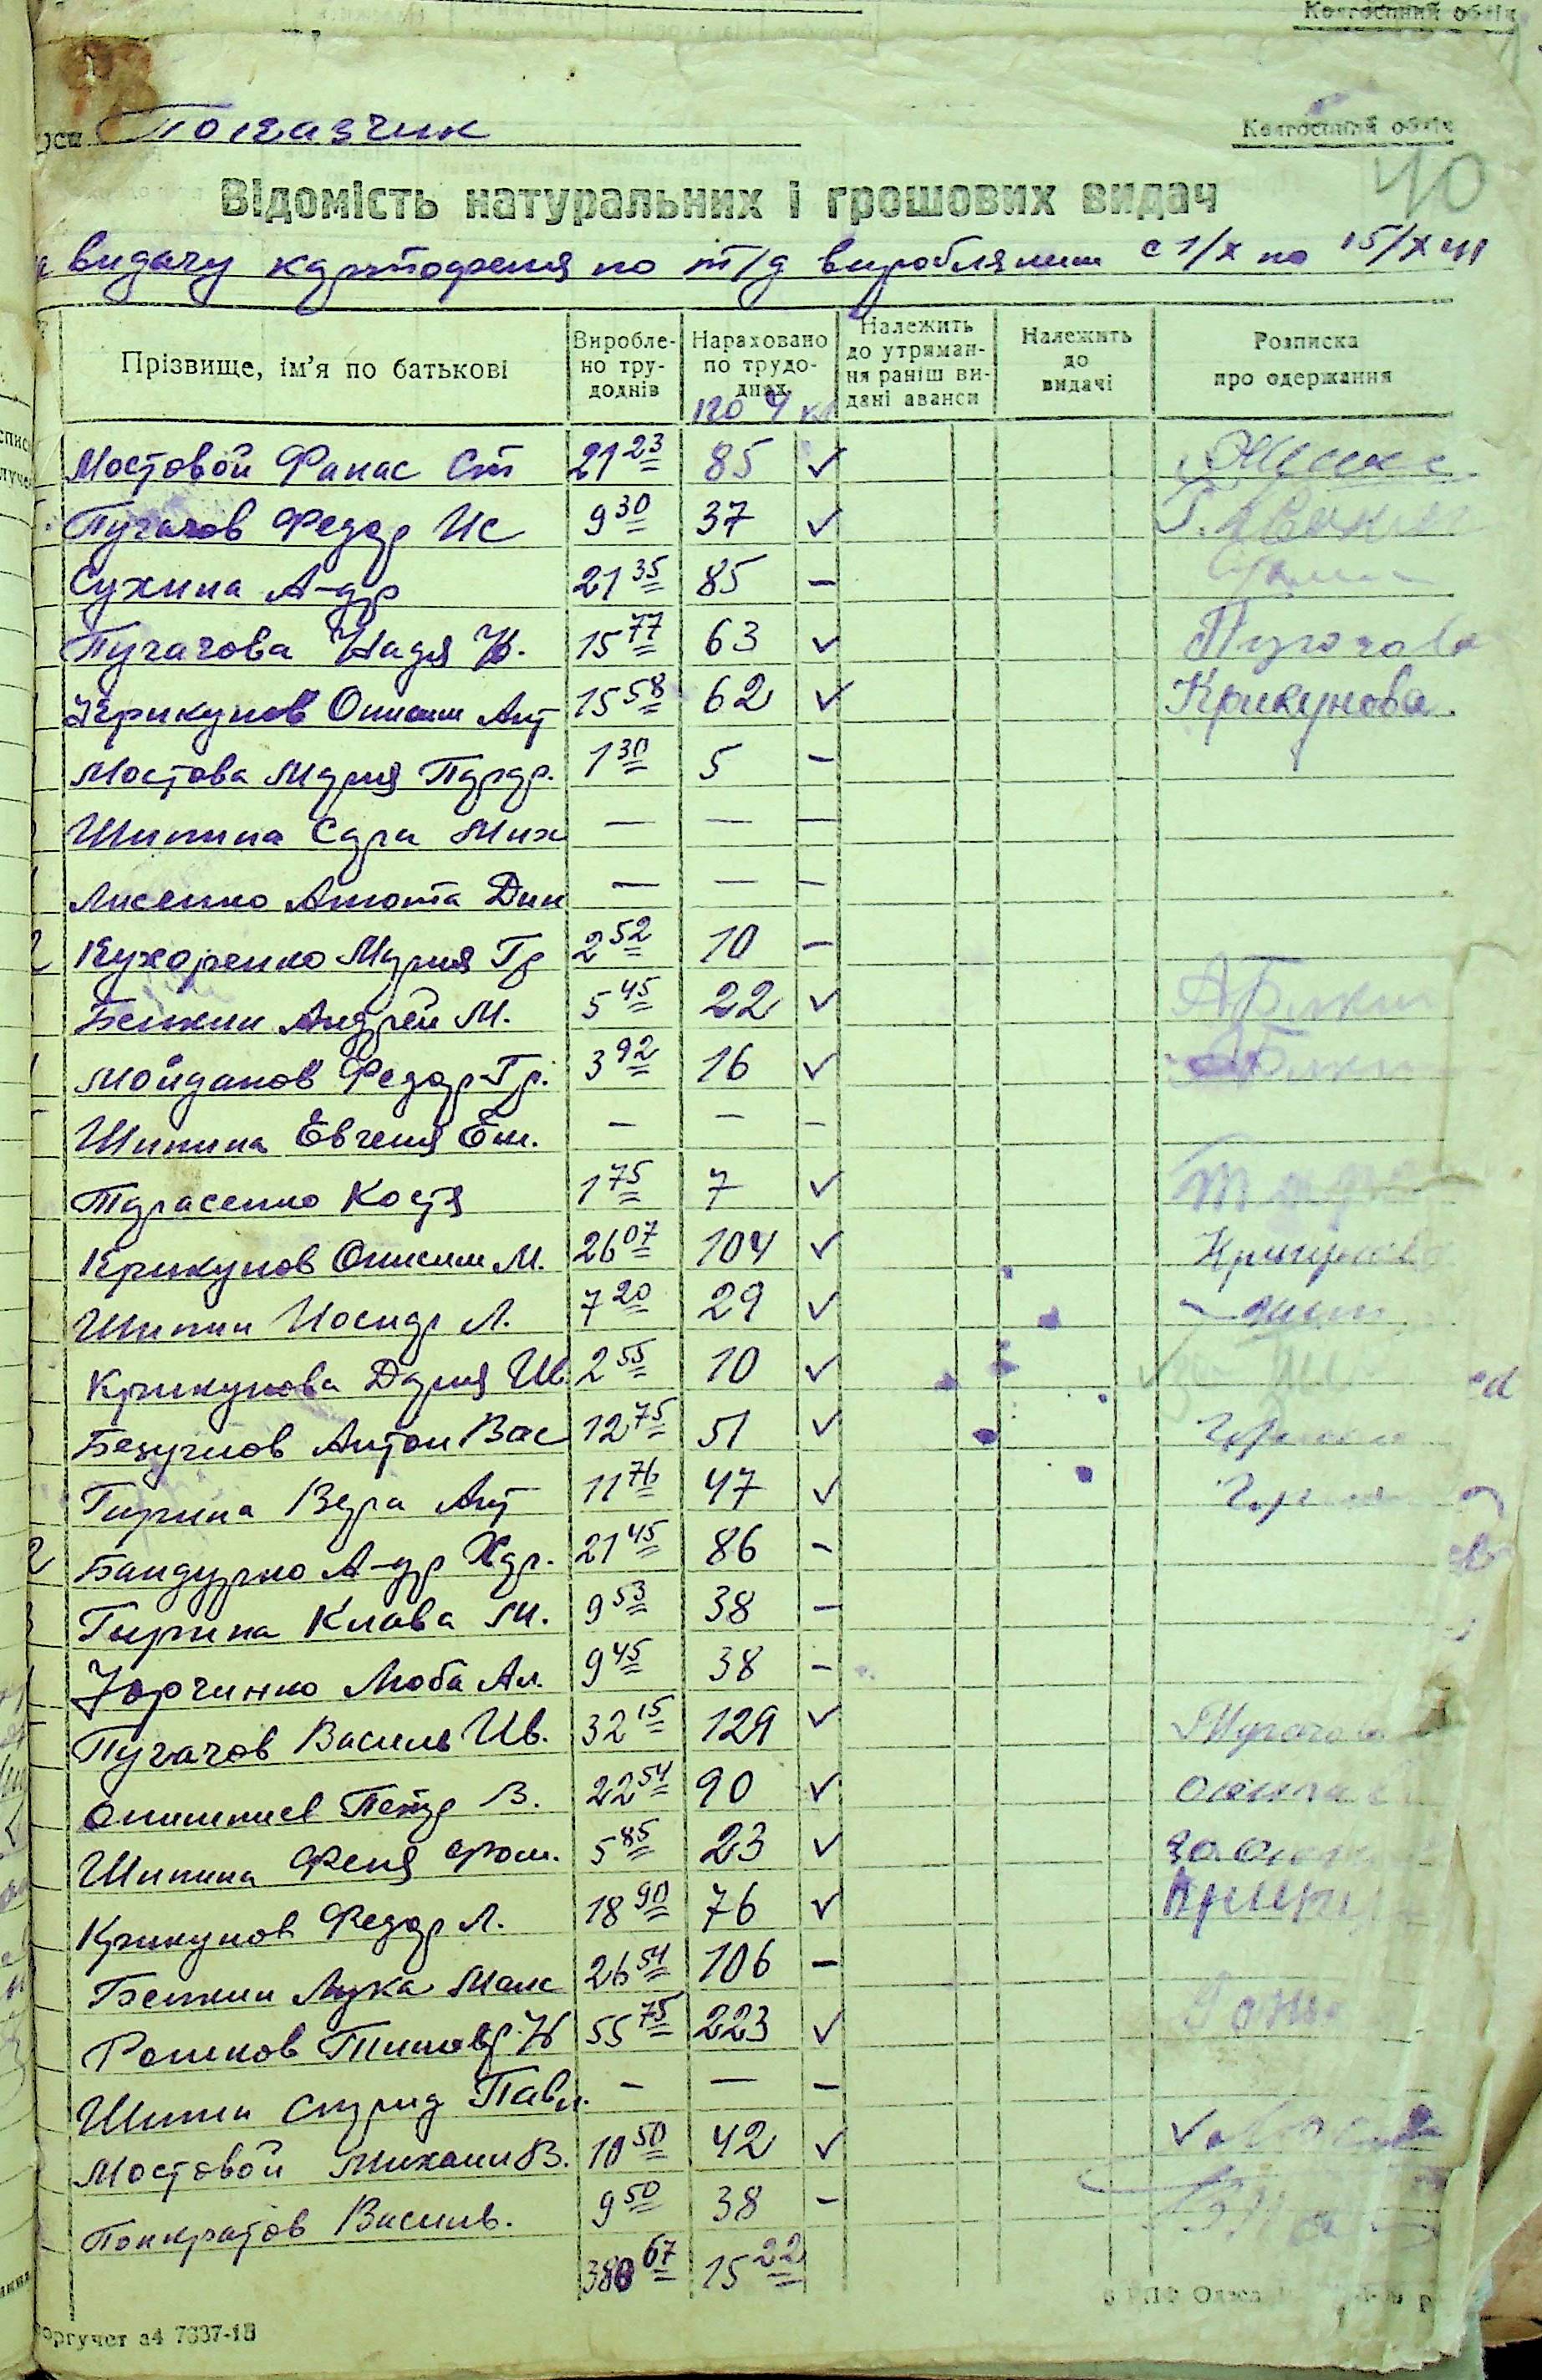 Колгоспний облік
Показчик
Колгоспний облік
40
Відомість натуральних і грошових видач
видачу картофеля по т/д виробляним с 1/X по 15/X 41
Прізвище, ім’я по батькові Вироблено трудоднів Нараховано по трудоднях Належить до утримання раніш видані аванси Належить до видачі Розписка про одержання
по 4 кг
Мостовой Фанас Ст 21 23 85 ✓
Пугачов Федор Ис 9 30 37 ✓
Сухина А-др 21 35 85 –
Пугачова Надя И. 15 77 63 ✓ Пугачова
Крикунов Онисим Ант 15 58 62 ✓ Крикунова
Мостова Мария Парфр. 1 30 5 –
Шипина Сара Мих – – –
Лисенко Анюта Дин – – –
Кухаренко Мария Гр 2 52 10 –
Белкин Андрей М. 5 45 22 ✓ АБелкин
Мойданов Федор Гр. 3 92 16 ✓ АБелкин
Шипина Евгения Ем. – – –
Тарасенко Костя 1 75 7 ✓
Крикунов Онисим М. 26 07 104 ✓ Крикунова
Шипин Иосиф Л. 7 20 29 ✓
Крикунова Дария Ив. 2 55 10 ✓
Безуглов Антон Вас 12 75 51 ✓
Гирина Вера Ант 11 76 47 ✓
Бандурко А-др Хар. 21 45 86 –
Гирина Клава М. 9 53 38 –
Юрченко Люба Ал. 9 45 38 –
Пугачов Василь Ив. 32 15 129 ✓ Пугачова
Анишнев Петр В. 22 54 90 ✓
Шипина Феня Фом. 5 85 23 ✓
Крикунов Федор Л. 18 90 76 ✓
Белкин Лука Макс 26 54 106 –
Рошков Тимофей И 55 75 223 ✓
Шипин Спирид Павл. – – –
Мостовой Михаил В. 10 50 42 ✓
Понкратов Василь. 9 50 38 –
380 67 15 22
оргучет з4 7337-1В